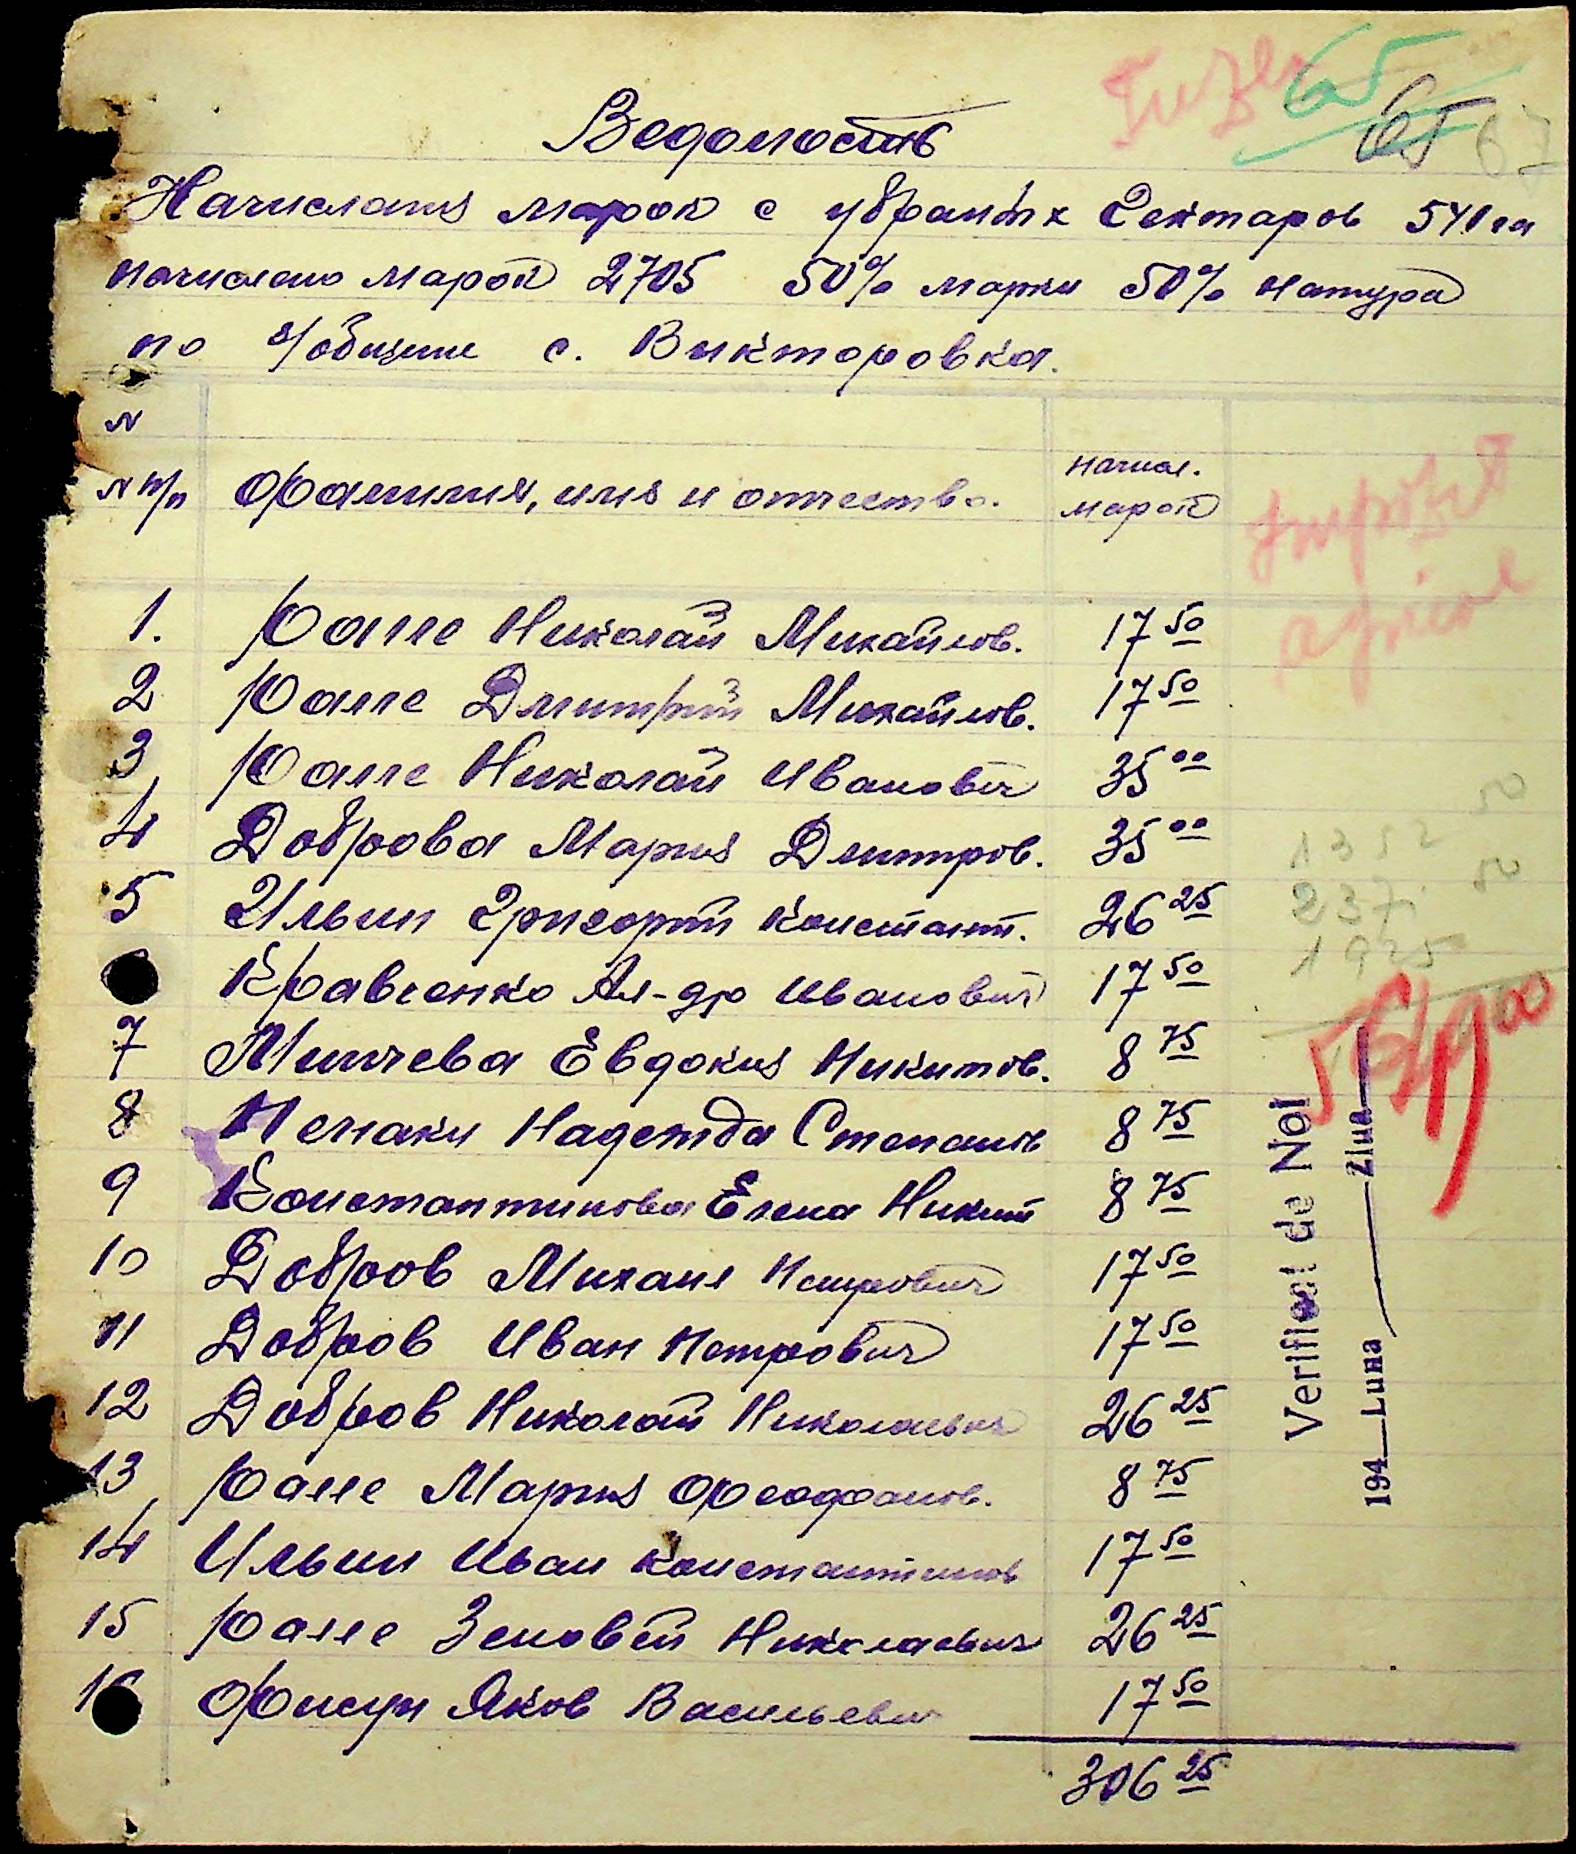 65
65 67
Ведомость
Начисления марок с убраных Гектаров 541 га
начислено марок 2705 50% марки 50% натура
по с/общине с. Викторовка.
N
N п/п Фамилия, имя и отчество. начисл.
марок
Impozit
agricol
1. Рале Николай Михайлов. 17 50
2 Рале Дмитрий Михайлов. 17 50
3 Рале Николай Иванович 35 00
4 Доброва Мария Дмитров. 35 00
5 Ильин Григорий Констант. 26 25
Кравченко Ал-др Иванович 17 50
7 Минчева Евдокия Никитов. 8 75
8 Надежда Степанов 8 75
9 Константинова Елена Никит 8 75
10 Добров Михаил Петрович 17 50
11 Добров Иван Петрович 17 50
12 Добров Николай Николаевич 26 25
13 Рале Мария Феофанов. 8 75
14 Ильин Иван Константинов 17 50
15 Рале Зеновей Николаевич 26 25
16 Фисун Яков Васильевич 17 50
306 25
1352 50
237 50
1925
Verificat de Noi
194 Luna Ziua